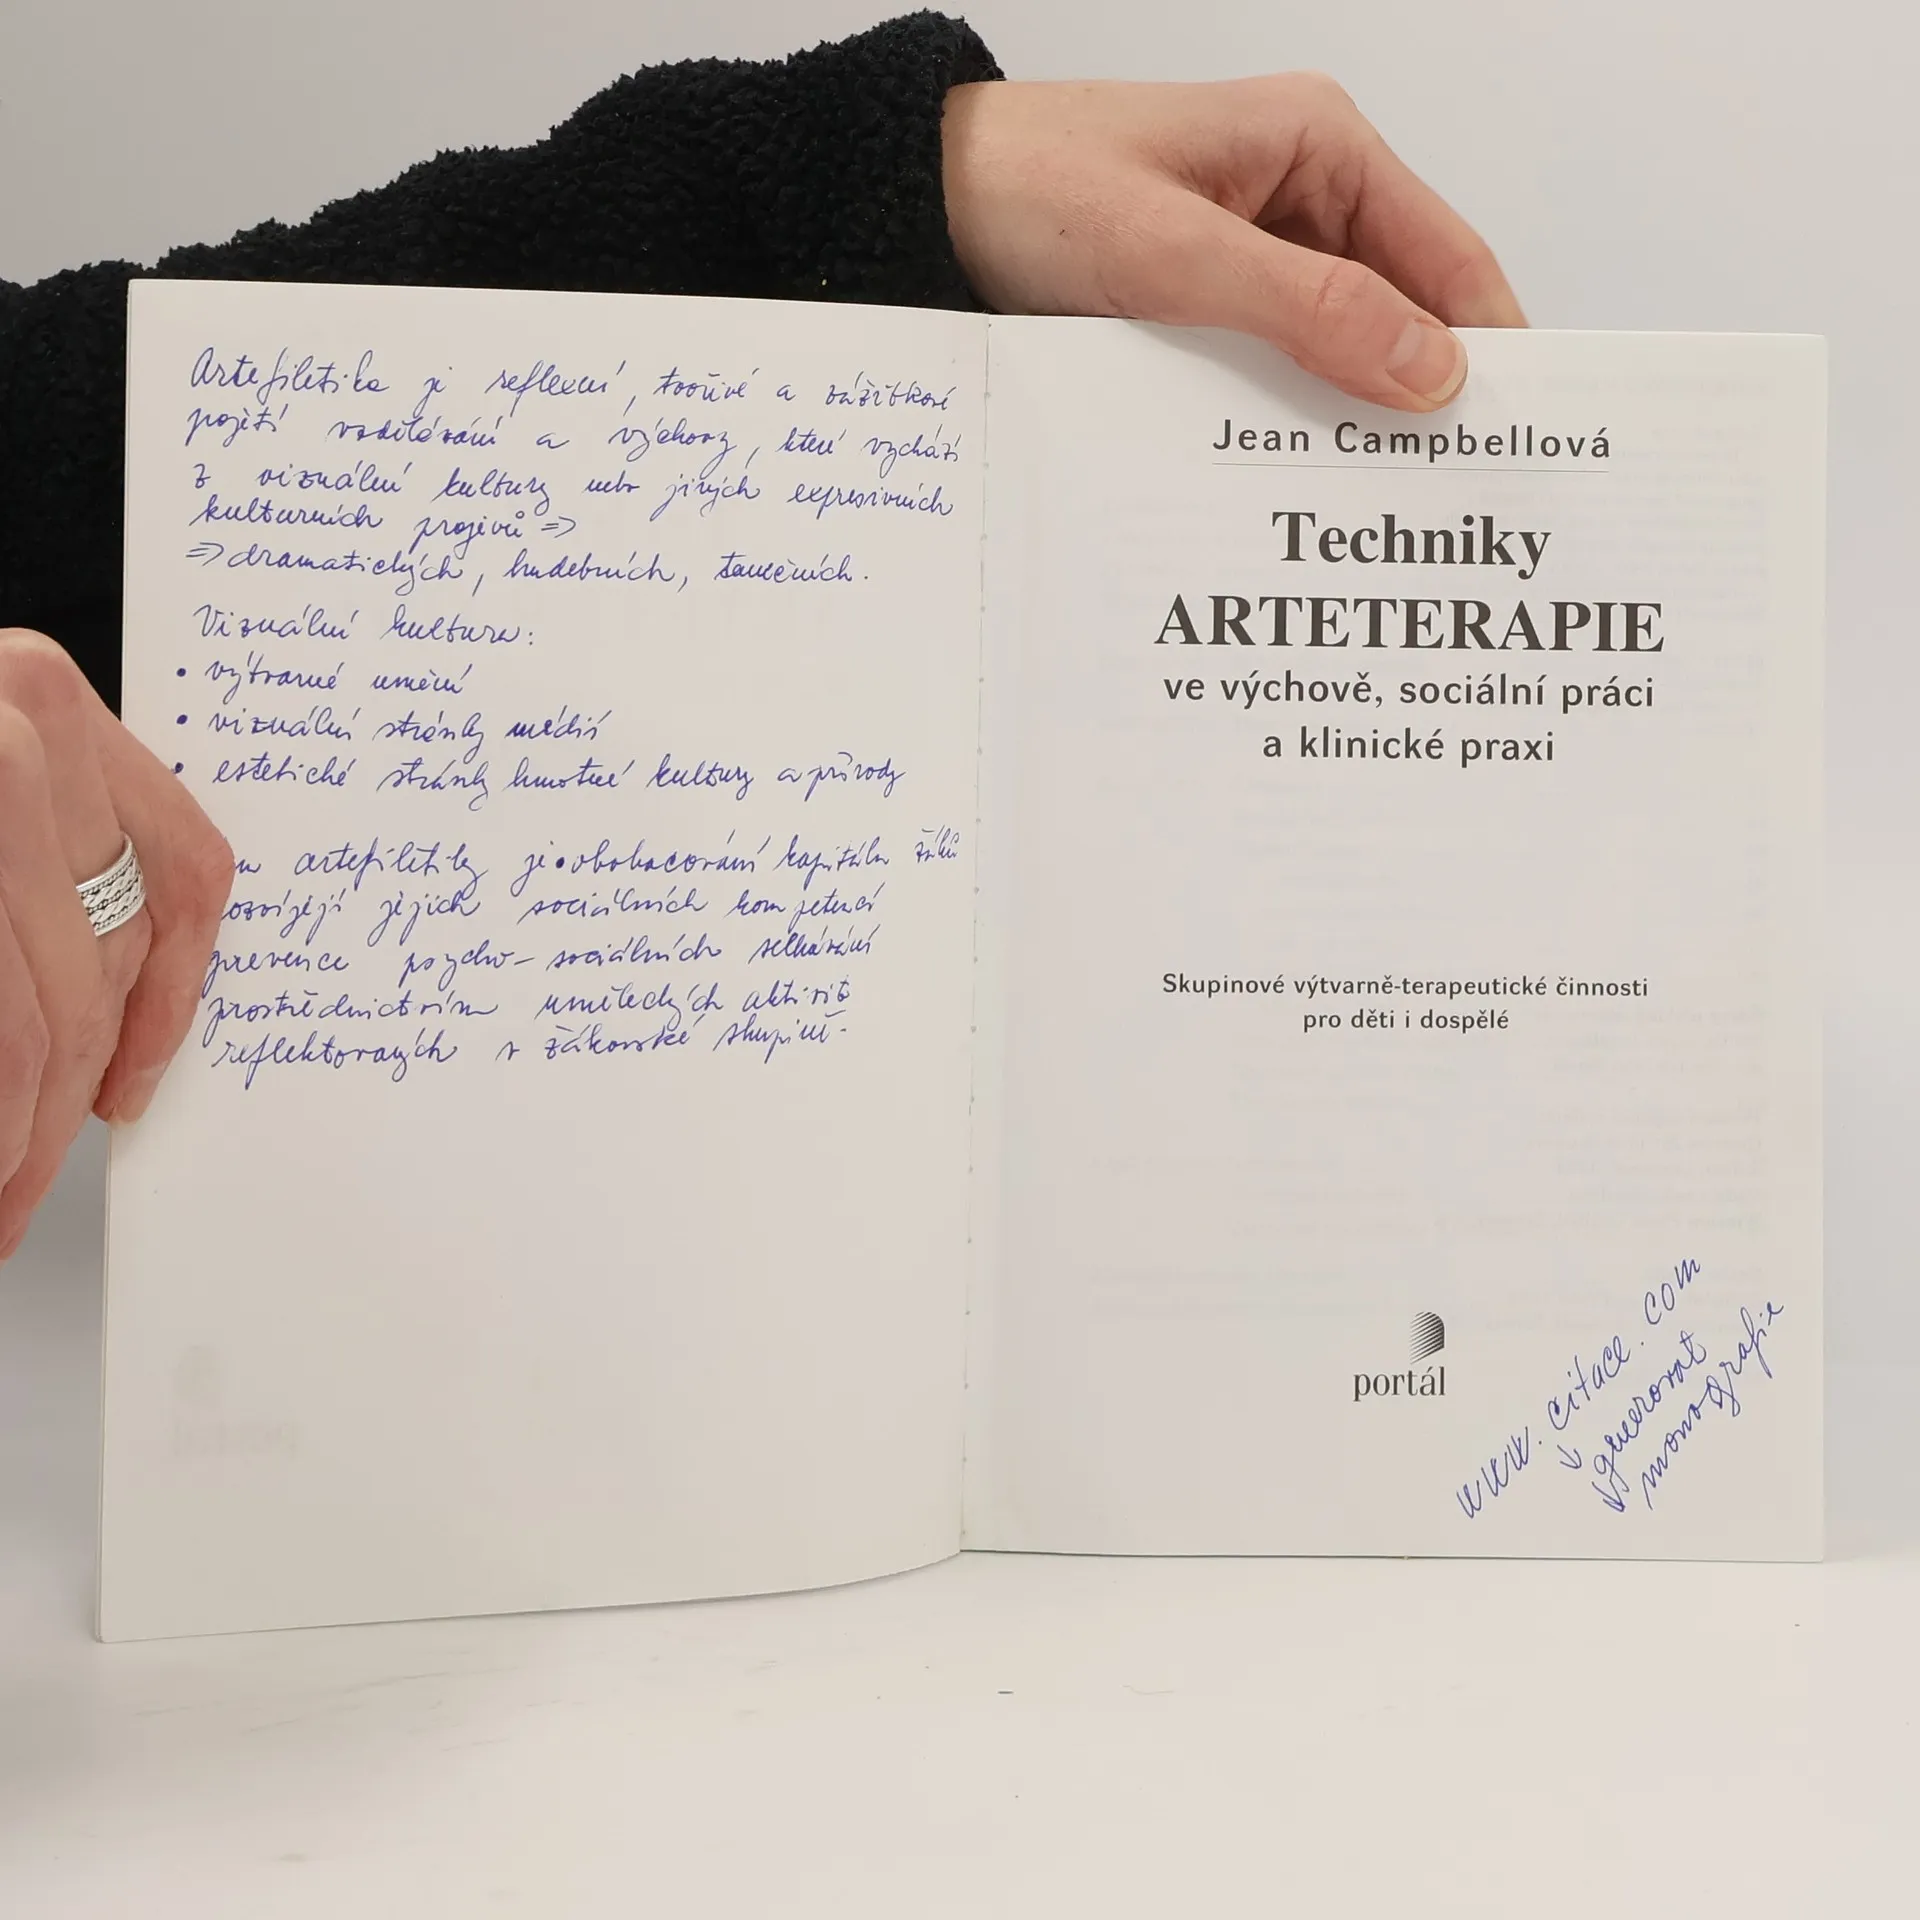 Artefiletika je reflexní, tvořivé a zážitkové
pojetí vzdělávání a výchovy, které vychází
z vizuální kultury nebo jiných expresivních
kulturních projevů =>
=> dramatických, hudebních, tanečních.
Vizuální kultura:
• výtvarné umění
• vizuální stránky médií
• estetické stránky hmotné kultury a přírody
artefiletiky je • obohacování kapitálu žáků
jejich sociálních kompetencí
prevence psycho-sociálních selhávání
prostřednictvím uměleckých aktivit
reflektovaných v žákovské skupině.
Jean Campbellová
Techniky
ARTETERAPIE
ve výchově, sociální práci
a klinické praxi
Skupinové výtvarně-terapeutické činnosti
pro děti i dospělé
portál
www.citace.com
↓ generovat
↓ monografie